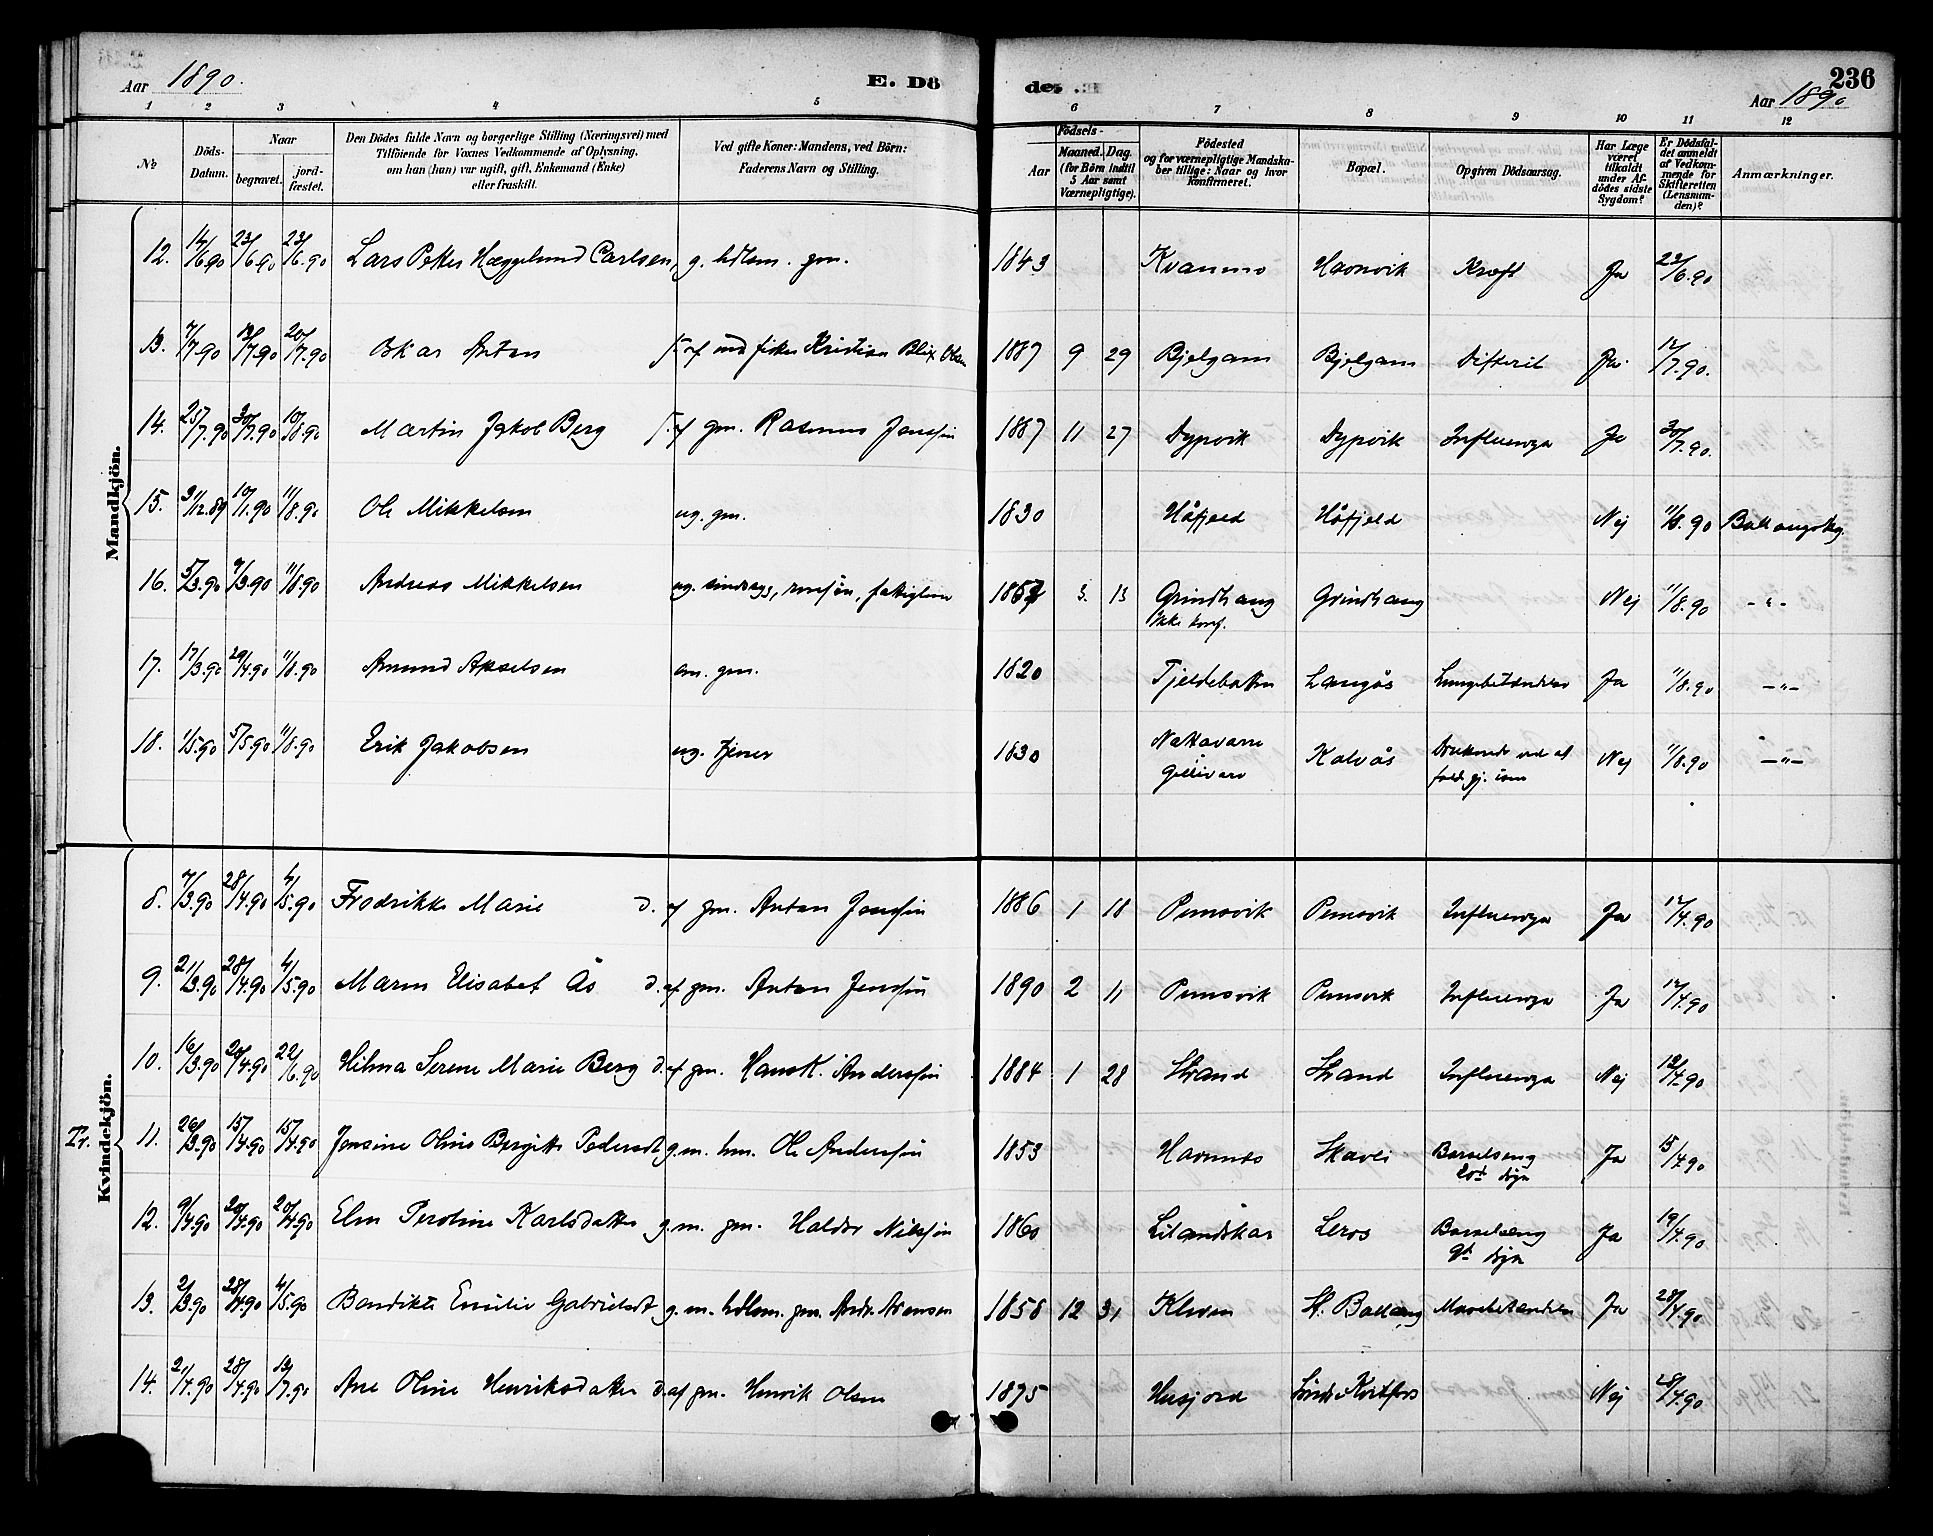 Aar 1890. E. Dö
de. 236
Aar 1890
1 2 3 4 5 6 7 8 9 10 11 12
No
Döds-Datum.
Naar
begravet.
jord-fæstet.
Den Dödes fulde Navn og borgerlige Stilling (Næringsvei) med
Tilföiende for Voxnes Vedkommende af Oplysning,
om han (hun) var ugift, gift, Enkemand (Enke)
eller fraskilt.
Ved gifte Koner: Mandens, ved Börn:
Faderens Navn og Stilling.
Födsels-
Aar
Maaned. Dag.
(for Börn indtil
5 Aar samt
Værnepligtige).
Födested
og for værnepligtige Mandska-
ber tillige: Naar og hvor
konfirmeret.
Bopæl.
Opgiven Dödsaarsag.
Har Læge
været
tilkaldt
under Af-
dödes sidste
Sygdom?
Er Dödsfal-
det anmeldt
af Vedkom-
mende for
Skifteretten
(Lensman-
den)?
Anmærkninger.
Mandkjön.
12. 14/6.90 23/6.90 23/6.90 Lars Petter Hæggelund Carlsen, g. hdlsm. gm. 1843 Kvanmo Havnvik Kræft Ja 22/6.90
13. 7/7.90 19/7.90 20/7.90 Oskar Anton f. af ind fisker Kristian Blix Olsen 1887 9 29 Bjelgam Bjelgam Difterit Ja 17/7.90.
14. 25/7.90 30/7.90 10/8.90 Martin Jakob Berg f. af gm. Rasmus Jonssøn 1887 11 27 Dypvik Dypvik Influenza Ja 30/7.90.
15. 31/12.89 10/1.90 11/8.90 Ole Mikkelsen ug. gm. 1830 Håfjeld Håfjeld Nej 11/8.90 Ballangskg.
16. 5/3.90 9/3.90 11/8.90 Andreas Mikkelsen ug. sindssyg, fattiglem 3. 13 Grindhaug Grindhaug Nej 11/8.90 -"-
ikke konf.
17. 17/3.90 29/4.90 11/8.90 Amund Akselsen em. gm. 1820 Tjeldebotten Langås Lungebetændelse Ja 11/8.90 -"-
18. 1/5.90 5/5.90 11/8.90 Erik Jakobsen ug. tjener 1830 Nattavara Kalvås Druknede ved at Nej 11/8.90 -"-
Gellivare falde gj. isen
Tr.
Kvindekjön.
8. 7/3.90 28/4.90 4/5.90 Fredrikke Marie d. af gm. Anton Jenssøn 1886 1 18 Pumsvik Pumsvik Influenza Ja 17/4.90
9. 21/3.90 28/4.90 4/5.90 Maren Elisabet Ås d. af gm. Anton Jenssøn 1890 2 11 Pumsvik Pumsvik Influenza Ja 17/4.90
10. 16/3.90 20/4.90 22/6.90 Hilma Serene Marie Berg d. af gm. Hans K. Anderssøn 1884 1 28 Strand Strand Influenza Nej 19/4.90
11. 26/3.90 15/4.90 15/4.90 Jensine Oline Bergitte Pedersdt. g.m. hm. Ole Anderssøn 1853 Havnnes Skavli Barselseng Ja 15/4.90
20de døgn
12. 9/4.90 20/4.90 20/4.90 Elen Peroline Karlsdatter g.m. gm. Haldor Nilssøn 1860 Lilandskar Leros Barselseng Ja 19/4.90
9de døgn
13. 2/3.90 28/4.90 4/5.90 Bendikte Emilie Gabrielsdt. g.m. hdlsm. gm. Andr. Arensen 1858 12 31 Kleven St. Ballang Mavebetændelse Ja 28/4.90
14. 21/4.90 28/4.90 13/7.90 Ane Oline Henriksdatter d. af gm. Henrik Olsen 1875 Husjord Kvitfors Nej 28/4.90